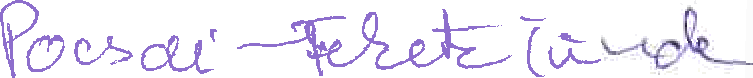 Pocsai-Fekete Tünde